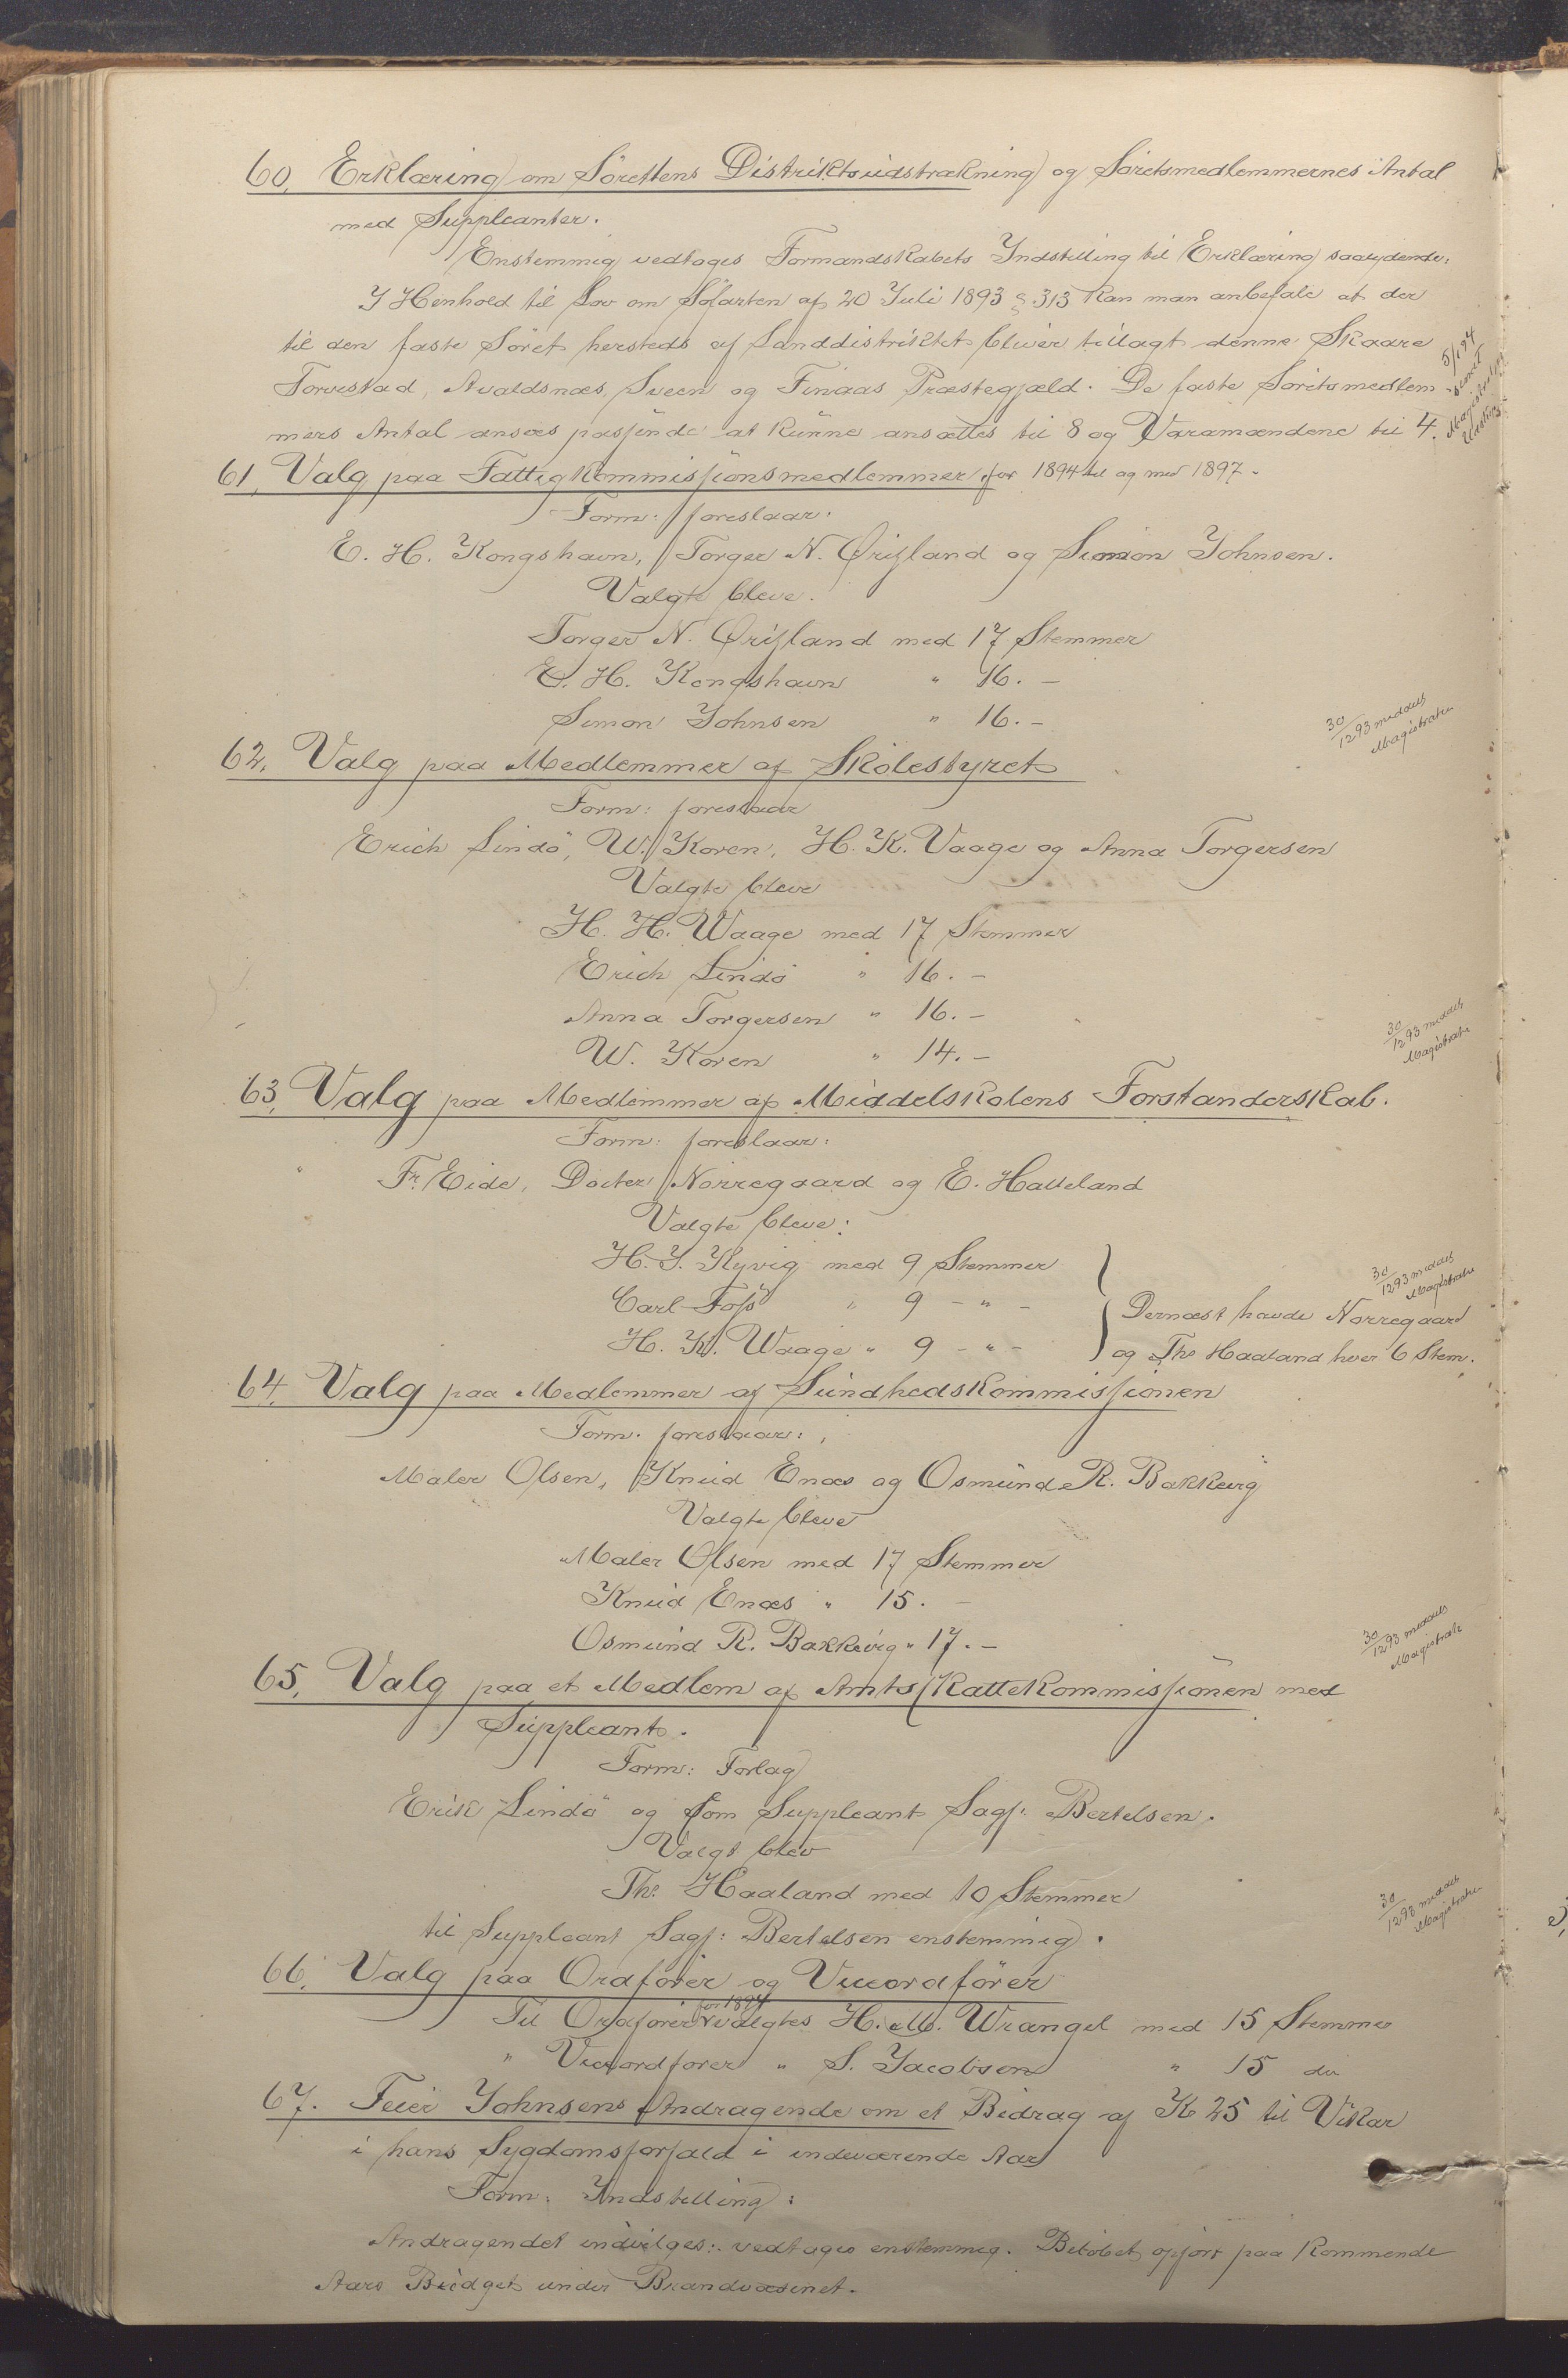 60, Erklæring om Sörettens Distriktsudstrækning og Söretsmedlemmernes Antal
med Suppleanter.
Enstemmig vedtoges Formandskabets Indstilling til Erklæring saalydende:
I Henhold til Lov om Söfarten af 20 Juli 1893 § 313 kan man anbefale at der
til den faste Söret hersteds af Landdistriktet bliver tillagt denne Skaare
Torvestad, Avaldsnæs, Sveen og Finaas Præstegjæld. De faste Söretsmedlem-
mers Antal ansees passende at kunne ansættes til 8 og Varamændene til 4.
5/1 94
Magistraten
61, Valg paa Fattigkommissionsmedlemmer for 1894 til og med 1897.
Form: foreslaar:
E. H. Kongshavn, Torger N. Qrisland og Simon Johnsen.
Valgte bleve.
Torger N. Qrisland med 17 Stemmer
E. H. Kongshavn " 16. –
Simon Johnsen " 16. –
30/12 93 meddelt
Magistraten
62, Valg paa Medlemmer af Skolestyret
Form: foreslaar
Erich Lindö, W. Koren, H. K. Vaage og Anna Torgersen
Valgte bleve
H. H. Waage med 17 Stemmer
Erich Lindö " 16. –
Anna Torgersen " 16. –
W. Koren " 14. –
30/12 93 meddelt
Magistrate
63, Valg paa Medlemmer af Middelskolens Forstanderskab.
Form: foreslaar:
Fr. Eide, Docter Nörregaard og E. Hatteland
Valgte bleve:
H. J. Kyvig med 9 Stemmer
Carl Foss " 9 – " –
H. K. Waage " 9 – " –
Dernæst havde Norregaard
og Ths Haaland hver 6 Stem.
30/12 93 meddelt
Magistrate
64, Valg paa Medlemmer af Sundhedskommissionen
Form. foreslaar:
Maler Olsen, Knud Enæs og Osmund R. Bakkevig
Valgte bleve
Maler Olsen med 17 Stemmer
Knud Enæs " 15. –
Osmund R. Bakkevig " 17. –
30/12 93 meddelt
Magistrate
65, Valg paa et Medlem af Amtsskattekommissionen med
Suppleant.
Form: Forlag
Erik Lindö og som Suppleant Sagf: Bertelsen.
Valgt blev
Ths. Haaland med 10 Stemmer
til Suppleant Sagf: Bertelsen enstemmig.
30/12 93 meddelt
Magistraten
66, Valg paa Ordförer og Viceordförer
Til Ordförer for 1894 valgtes H. M. Wrangel med 15 Stemmer
" Viceordförer " S. Jacobsen " 15 do
67. Feier Johnsens Andragende om et Bidrag af K 25 til Vikar
i hans Sygdomsforfald i indeværende Aar
Form: Indstilling:
Andragendet indvilges:. vedtages enstemmig. Belöbet opföres paa kommende
Aars Budget under Brandvæsenet.